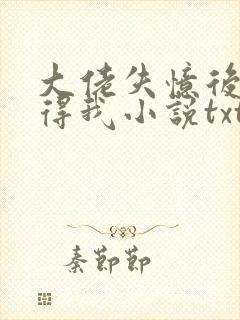 大佬失憶後
得我小說txt
秦節節